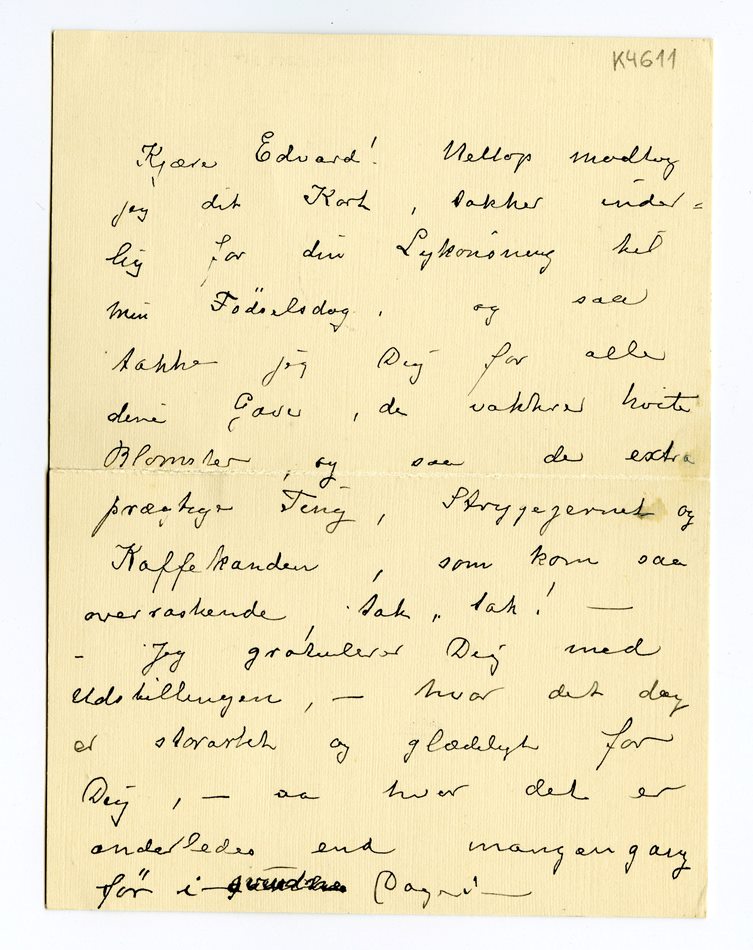 K4611
Kjære Edvard! Netop modtog
jeg dit Kort, takker inder=
lig for din Lykønsning til
min Födselsdag. og saa
takke jeg Dig for alle
dine Gave, de vakkre hvite
Blomster, og saa de extra
prægtige Ting, Strygejernet og
Kaffekanden, som kom saa
overraskende, tak, tak! —
- Jeg gratulerer Dig med
Udstillingen, — hvor det dog
er storartet og glædeligt for
Dig, — aa hvor det er
anderledes end mangengang
för i svundne Dage! —